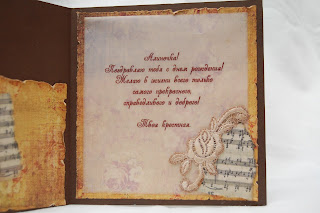 Алиночка!
Поздравляю тебя с днем рождения!
Желаю в жизни всего только
самого прекрасного,
справедливого и доброго!
Твоя крестная.